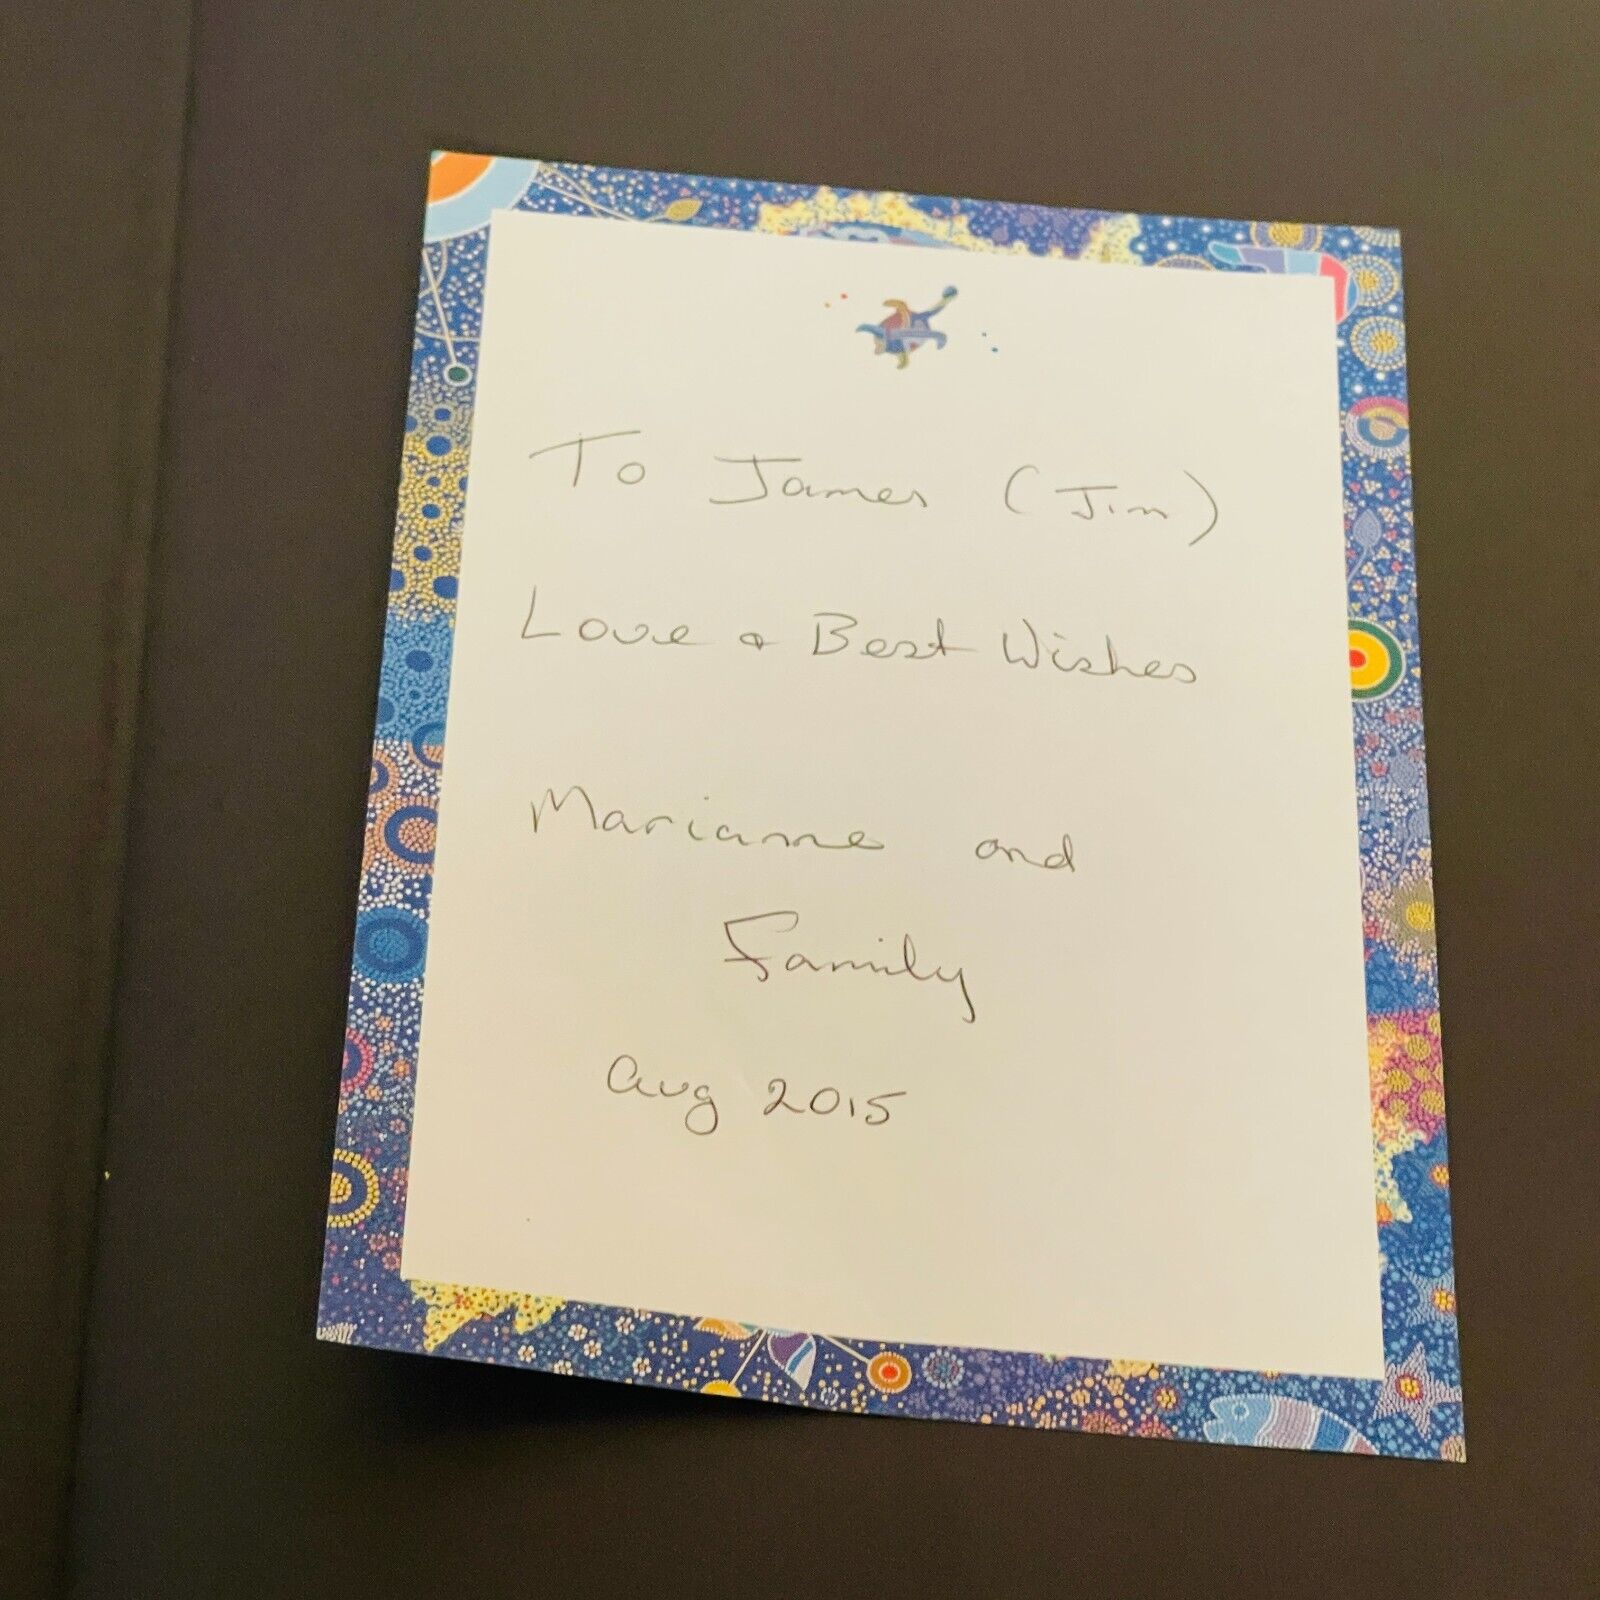 To James (Jim)
Love & Best Wishes
Marianne and
Family
Aug 2015